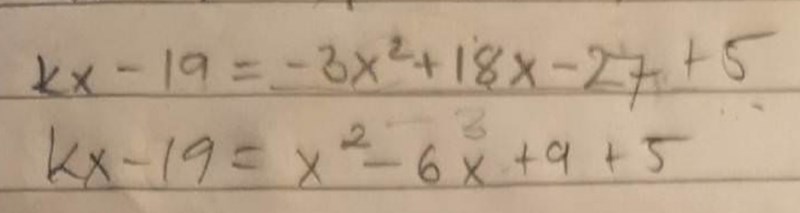 kx - 19 = -3x² + 18x - 27 + 5
kx - 19 = x² - 6x + 9 + 5